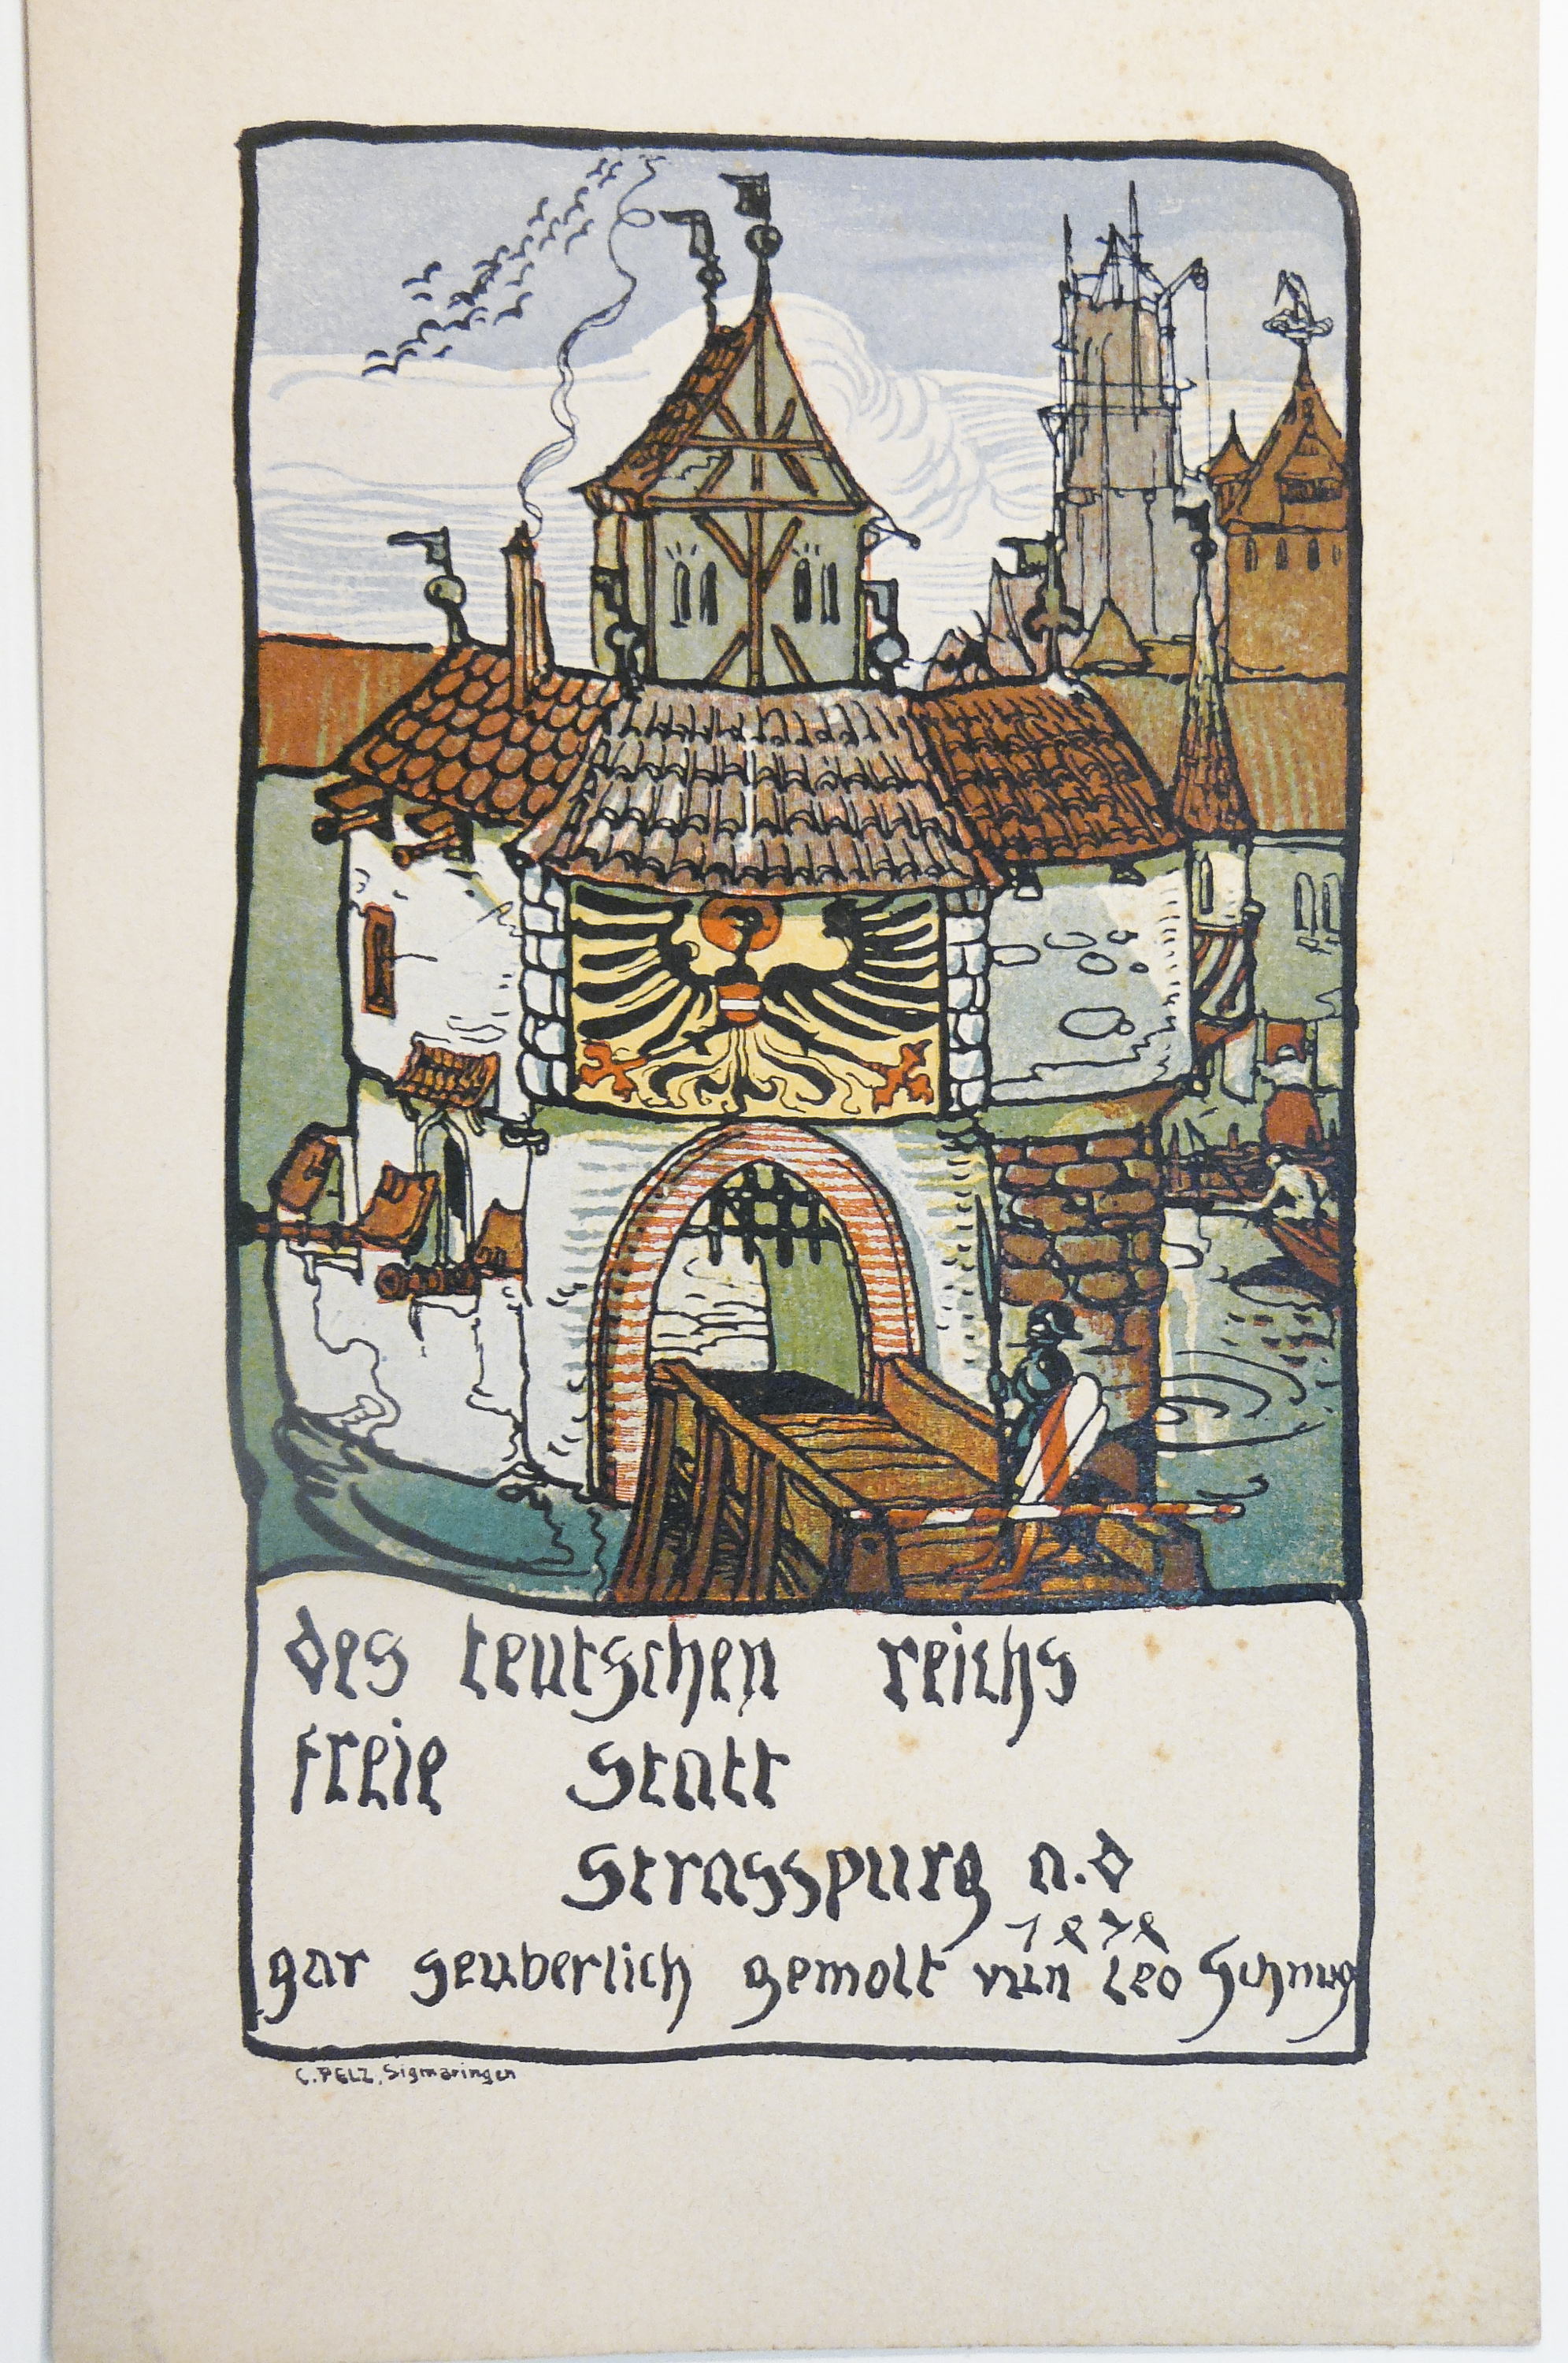 des teutschen reichs
freie Statt
Strasspurg a.d
gar seuberlich gemolt vun Leo Schnug
C. PELZ, Sigmaringen